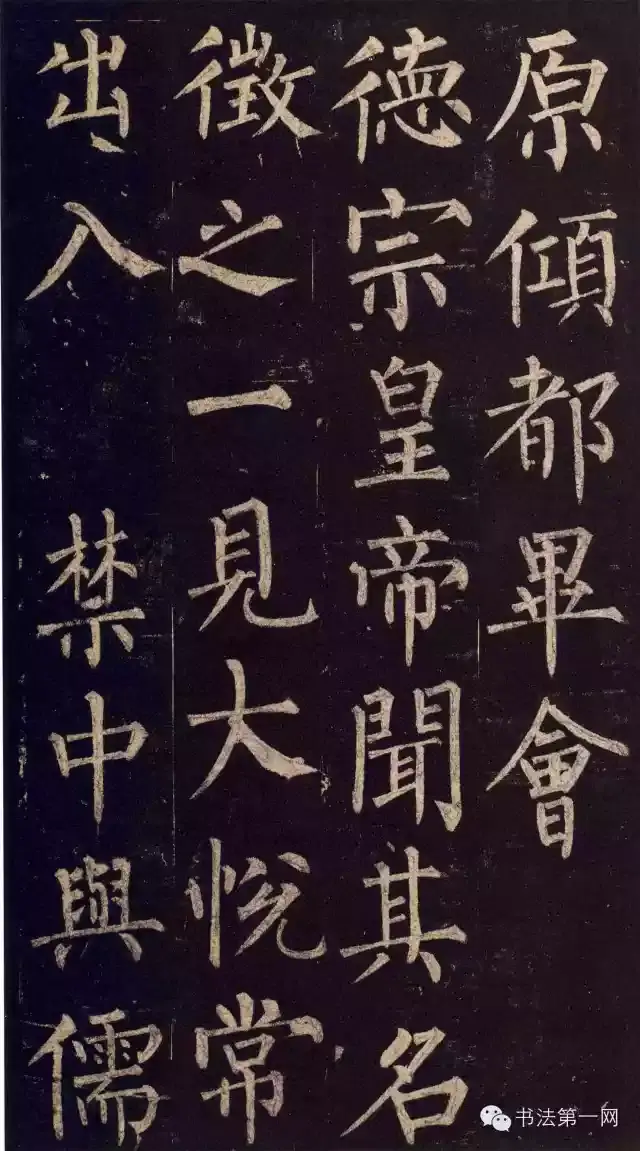 原傾都畢會
德宗皇帝聞其名
徵之一見大悅常
出入禁中與儒
书法第一网